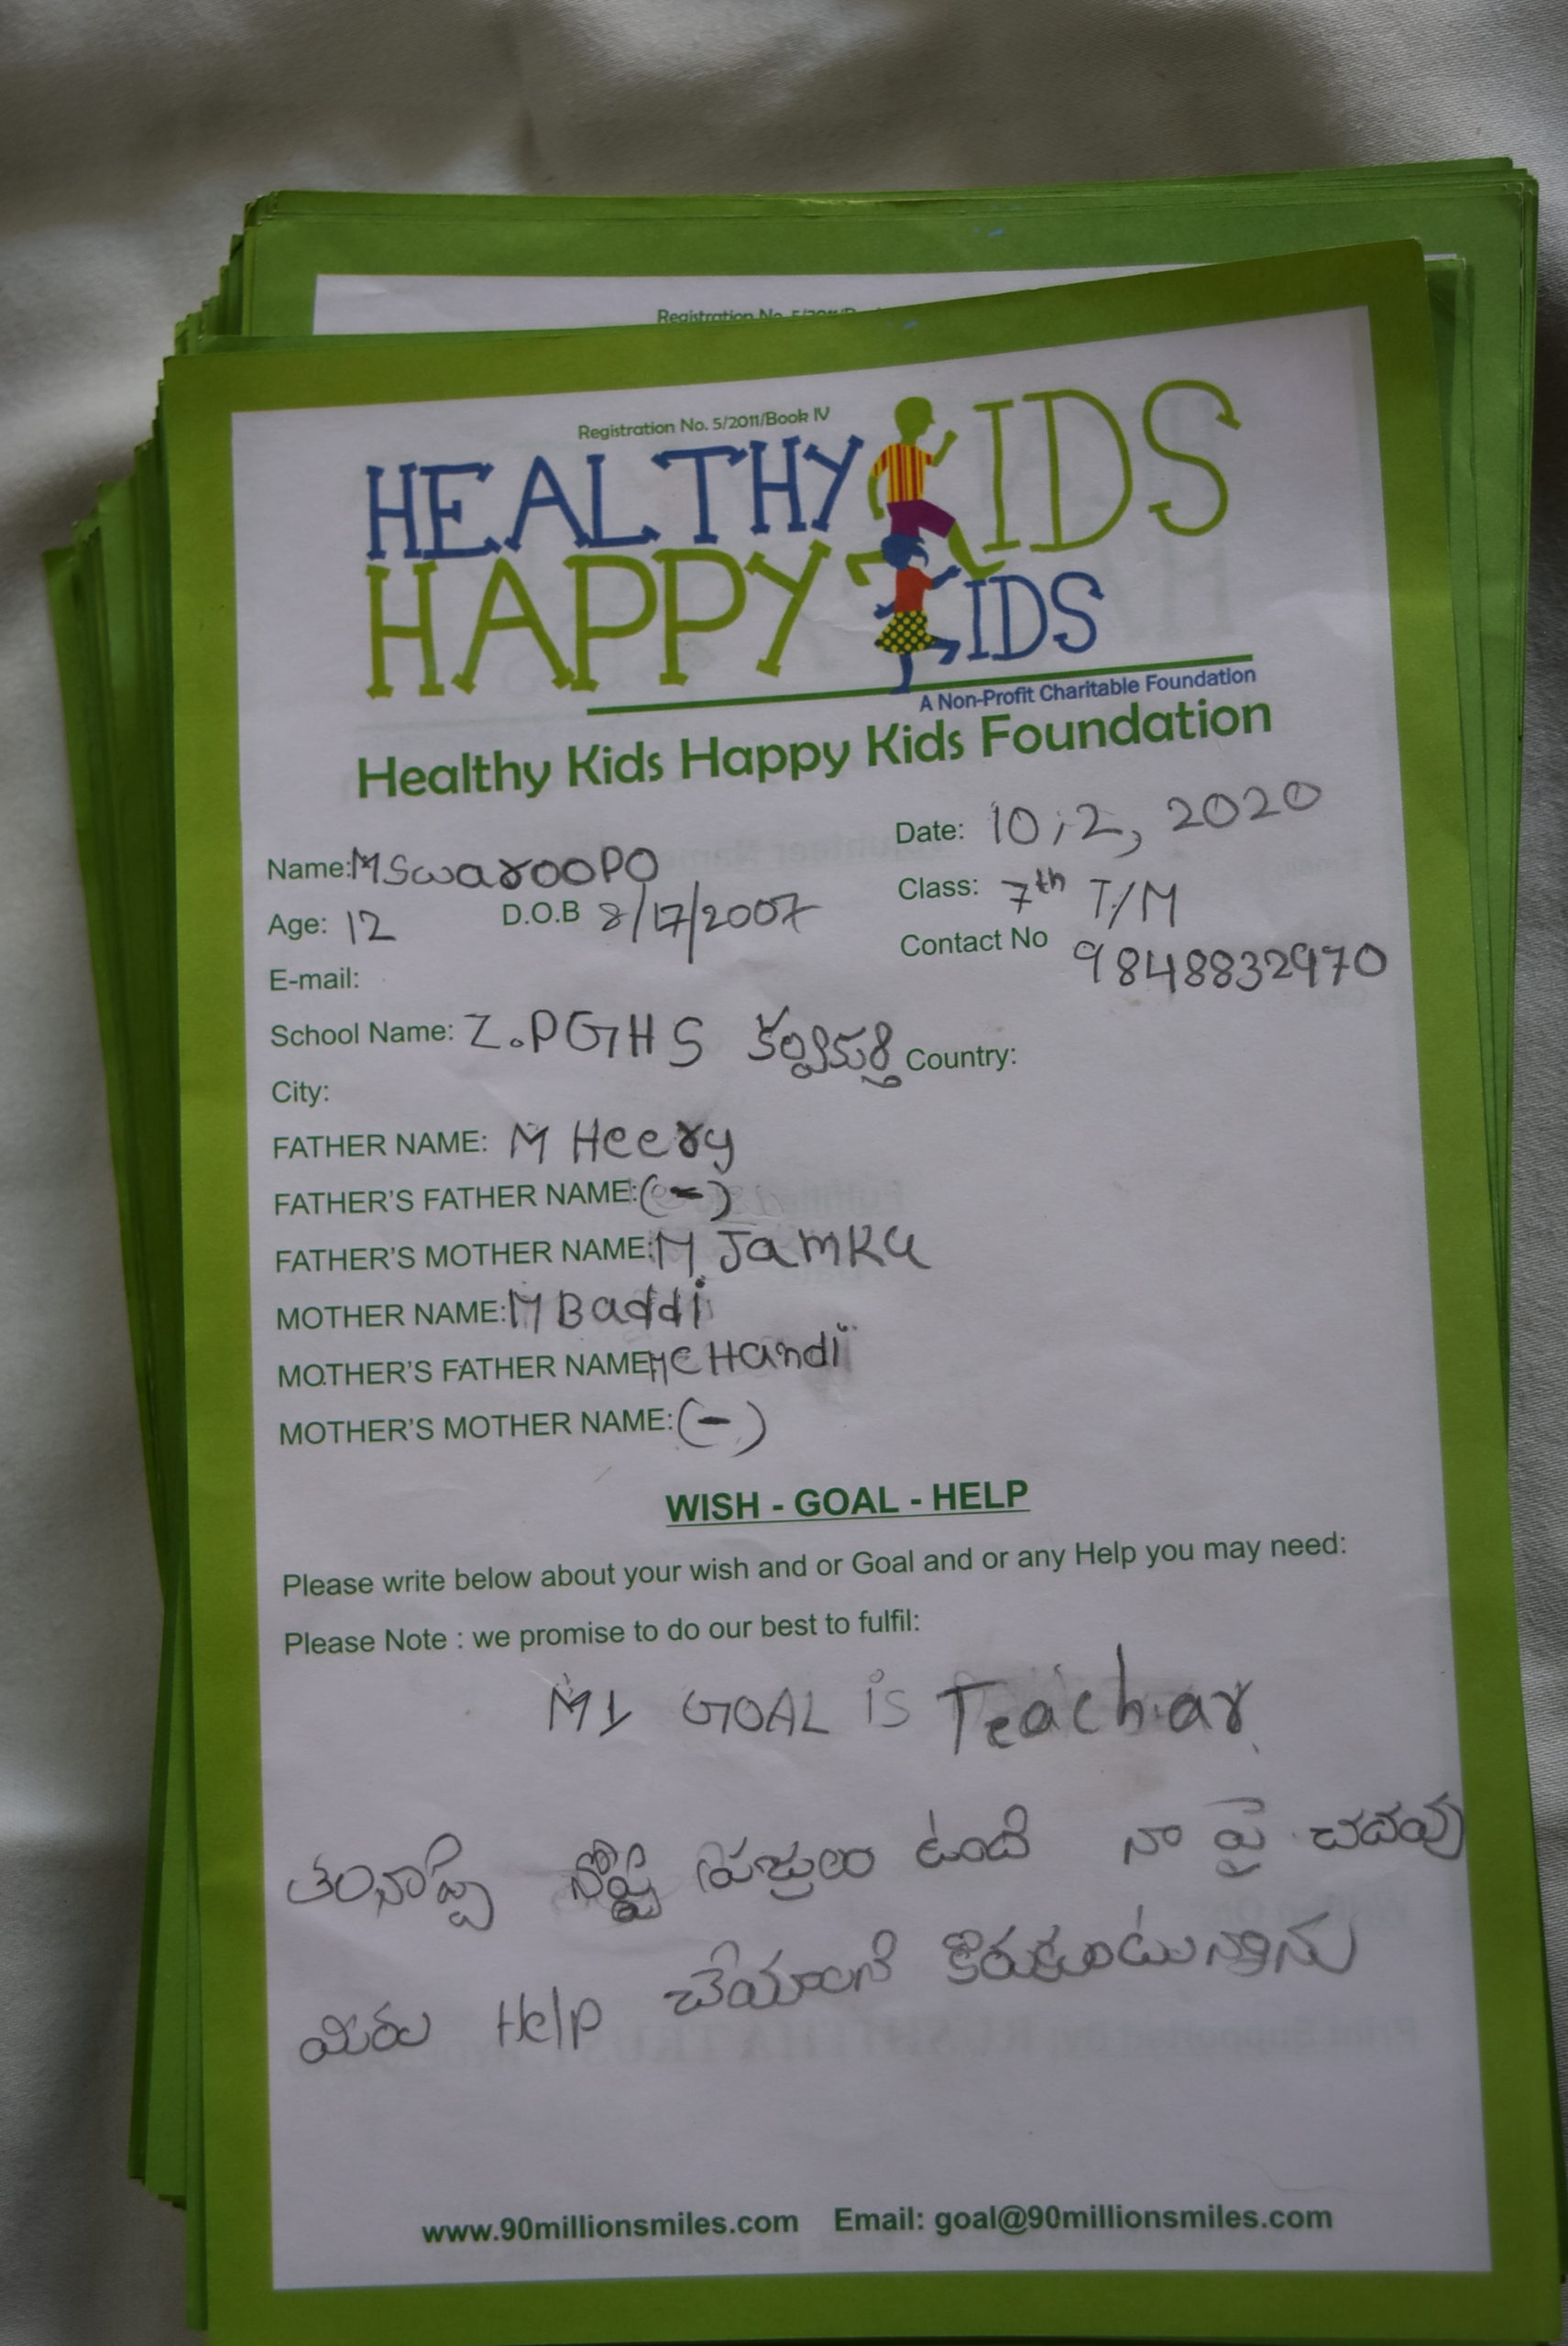 Registration No. 5/2011/
Registration No. 5/2011/Book IV
HEALTHY KIDS
HAPPY KIDS
A Non-Profit Charitable Foundation
Healthy Kids Happy Kids Foundation
Date: 10,2, 2020
Name: M SwarooPO
Class: 7th T/M
Age: 12 D.O.B 8/17/2007
Contact No 9848832970
E-mail:
School Name: Z.PGHS
Country:
City:
FATHER NAME: M Heery
FATHER'S FATHER NAME: (-)
FATHER'S MOTHER NAME: M Jamku
MOTHER NAME: M Baddi
MOTHER'S FATHER NAME: M CHandi
MOTHER'S MOTHER NAME: (-)
WISH - GOAL - HELP
Please write below about your wish and or Goal and or any Help you may need:
Please Note : we promise to do our best to fulfil:
MY GOAL is Teachar
ఉంది నా పై చదవు
మీరు Help చేయాలని కొరుకుంటున్నాను
www.90millionsmiles.com Email: goal@90millionsmiles.com